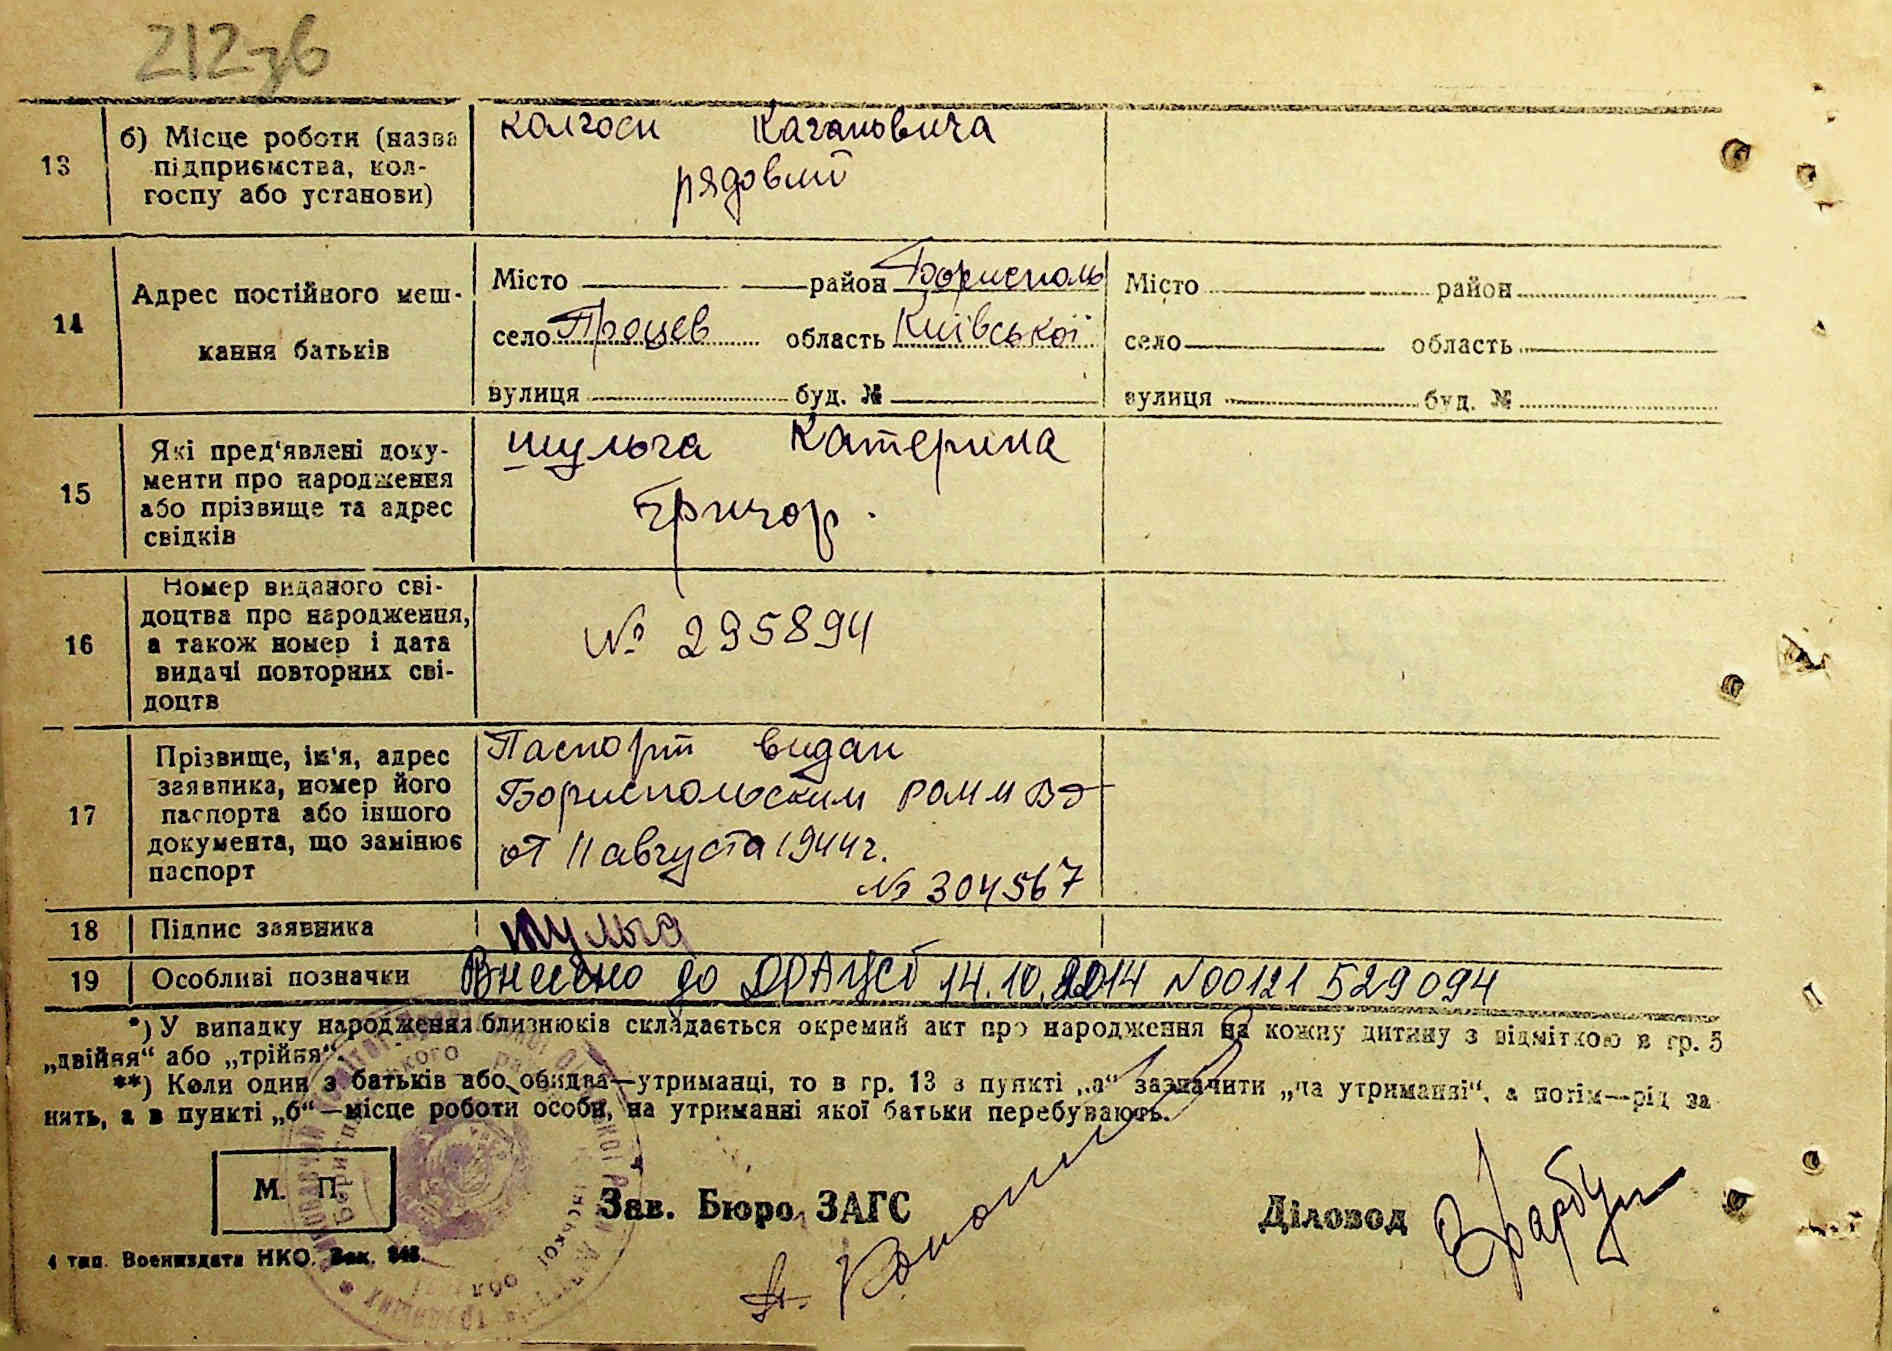 212зв
13
б) Місце роботи (назва
підприємства, кол-
госпу або установи)
колгосп Кагановича
рядовий
14
Адрес постійного меш-
кання батьків
Місто район Борисполь
село Процев область Київської
вулиця буд. №
Місто район
село область
вулиця буд. №
15
Які пред'явлені доку-
менти про народження
або прізвище та адрес
свідків
Шульга Катерина
Григор.
16
Номер виданого сві-
доцтва про народження,
а також номер і дата
видачі повторних сві-
доцтв
№ 295894
17
Прізвище, ім'я, адрес
заявника, номер його
паспорта або іншого
документа, що замінює
паспорт
Паспорт видан
Бориспольским
от 11 августа 1944 г.
№ 304567
18 Підпис заявника Шульга
19 Особливі позначки Внесено до ДРАЦСГ 14.10.2014 N00121529094
*) У випадку народження близнюків складається окремий акт про народження на кожну дитину з відміткою в гр. 5
„двійня“ або „трійня“.
**) Коли один з батьків або обидва—утриманці, то в гр. 13 в пункті „а“ зазначити „на утриманні“, а потім—рід за
нять, а в пункті „б“—місце роботи особи, на утриманні якої батьки перебувають.
М. П.
Зав. Бюро ЗАГС
Діловод
4 тип. Воениздата НКО. Зак.